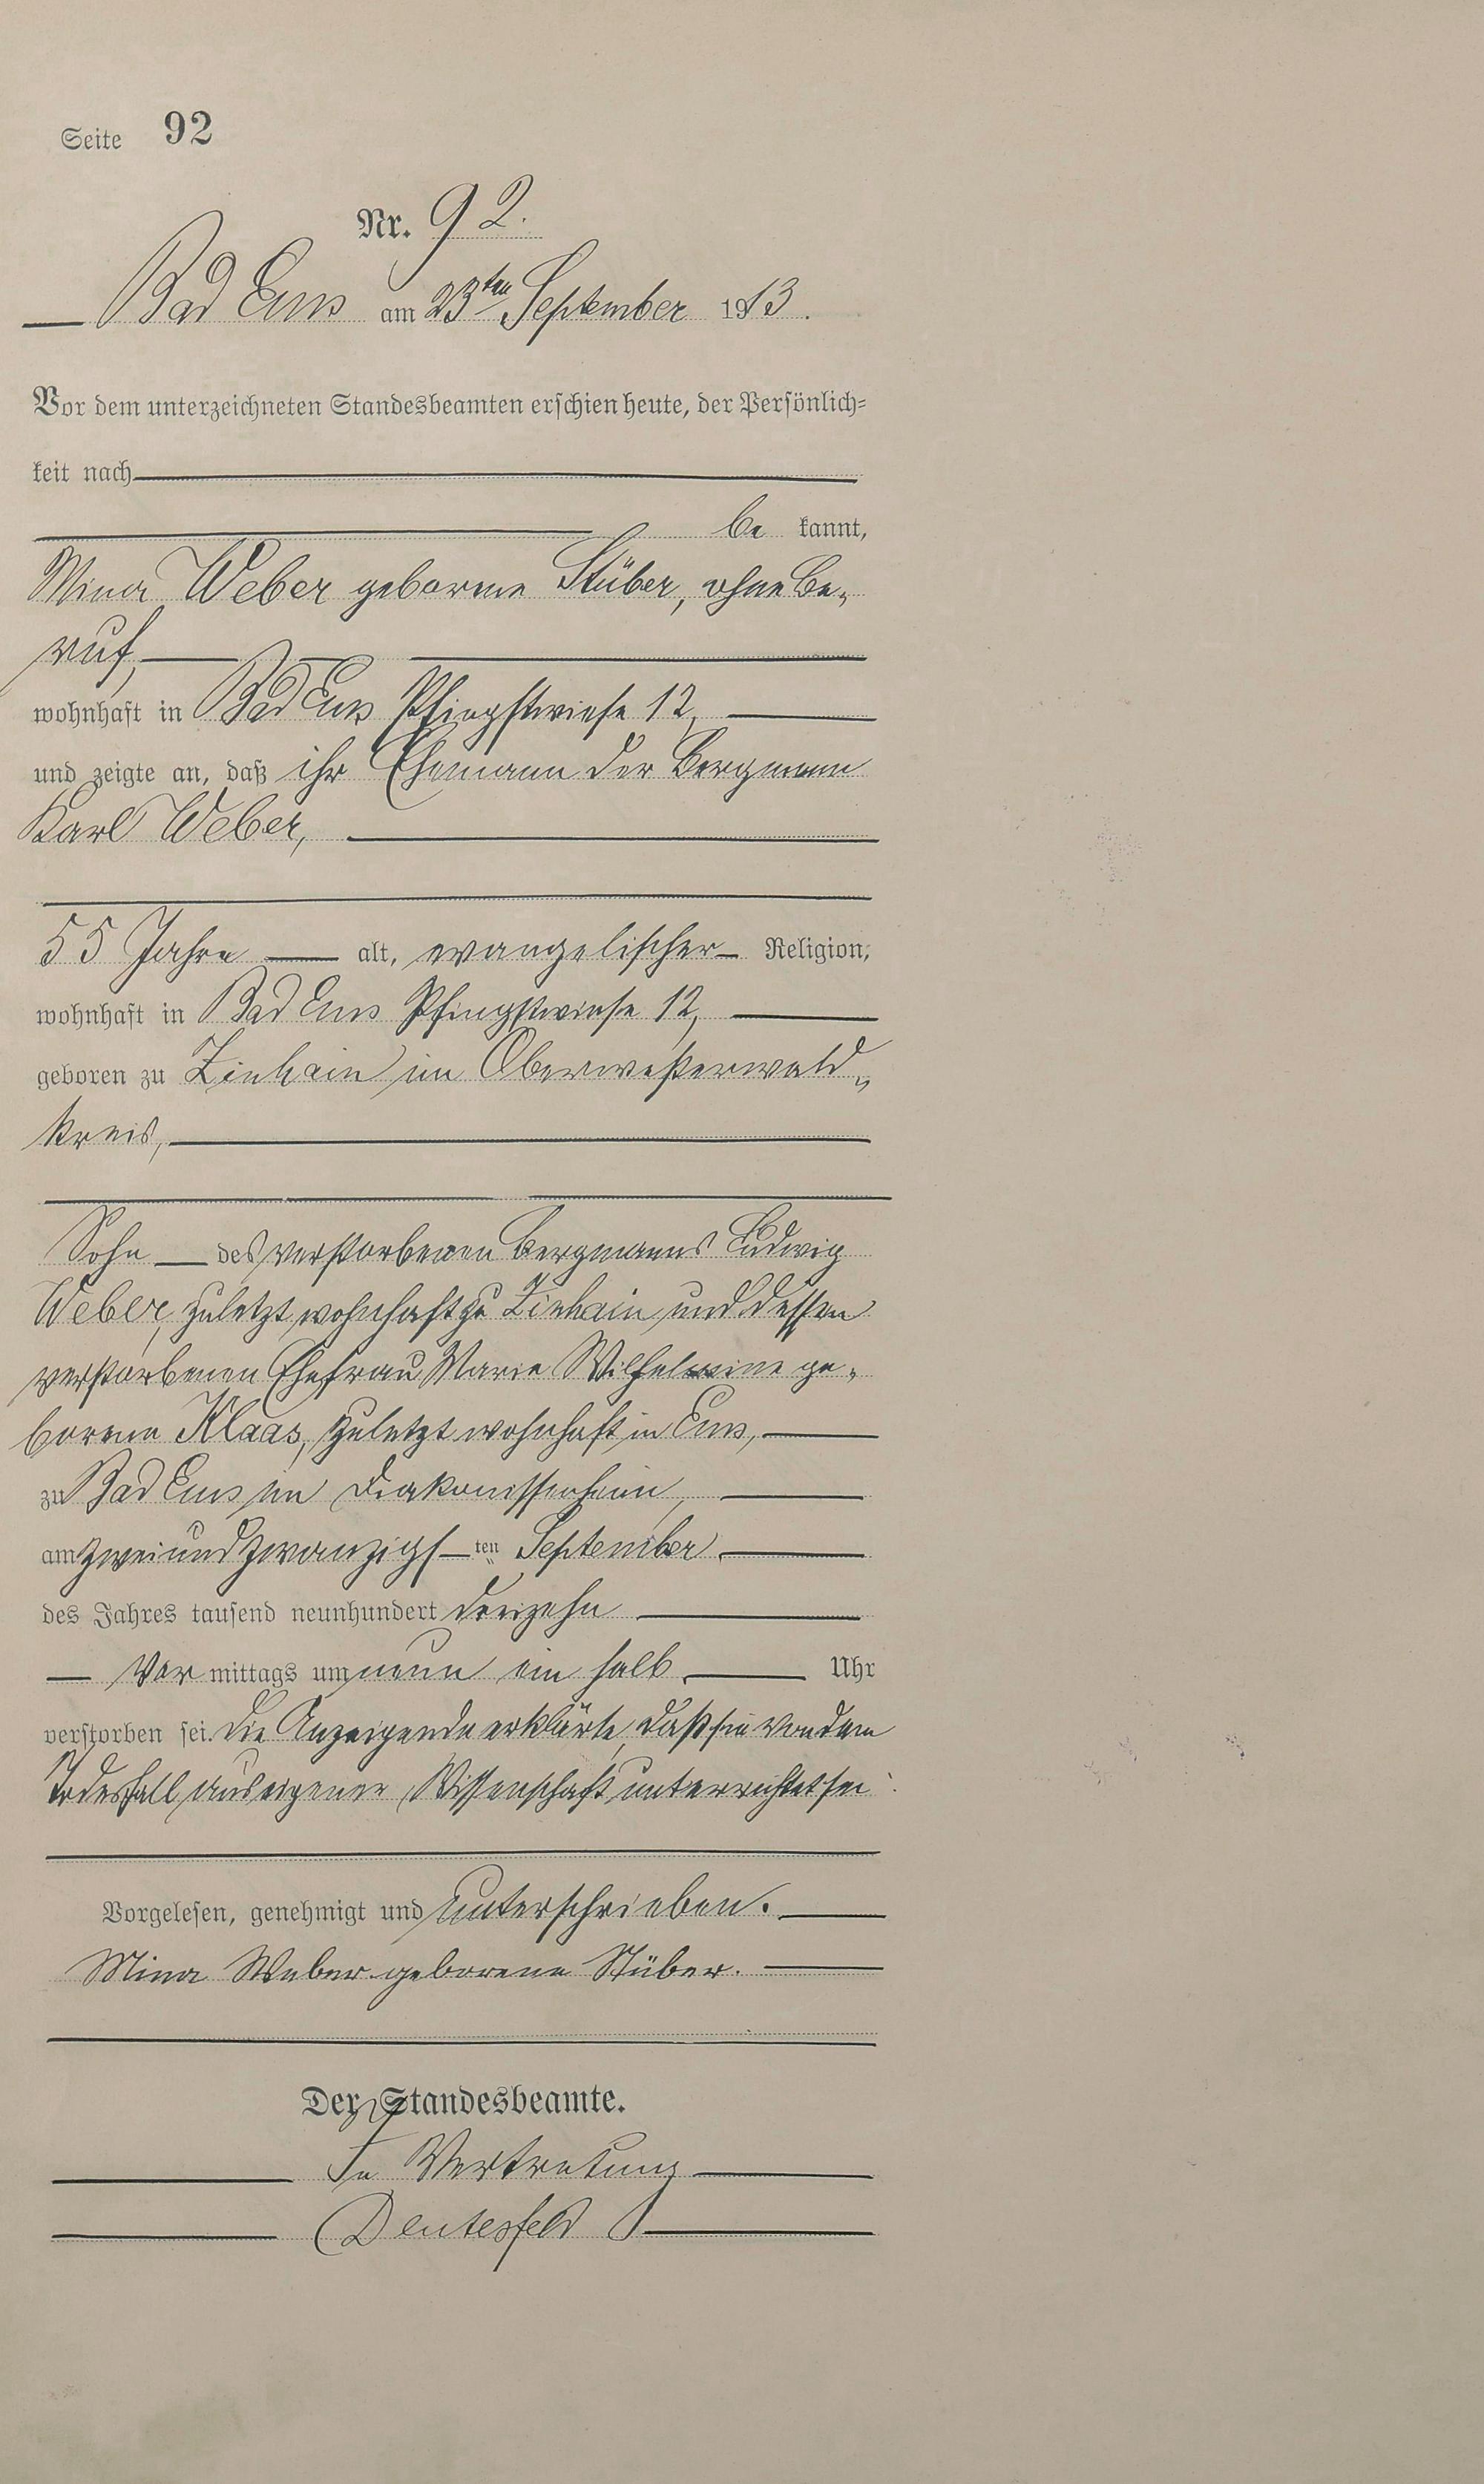 Seite 92
Nr. 92.
Bad Ems am 23ten September 1913.
Vor dem unterzeichneten Standesbeamten erschien heute, der Persönlich-
keit nach
be kannt,
Mina Weber geborene Stüber, ohne Be-
ruf,
wohnhaft in Bad Ems Pfingstwiese 12,
und zeigte an, daß ihr Ehemann der Bergmann
Karl Weber,
55 Jahre alt, evangelischer Religion,
wohnhaft in Bad Ems Pfingstwiese 12,
geboren zu Zinhain im Oberwesterwald-
kreis,
Sohn des verstorbenen Bergmanns Ludwig
Weber, zuletzt wohnhaft zu Zinhain und dessen
verstorbenen Ehefrau Marie Wilhelmine ge-
borene Klaas, zuletzt wohnhaft in Ems,
zu Bad Ems im Diakonissenheim,
am zweiundzwanzigsten September
des Jahres tausend neunhundert dreizehn
Vor mittags um neun ein halb Uhr
verstorben sei. Die Anzeigende erklärte, daß sie von dem
Todesfall aus eigener Wissenschaft unterrichtet sei.
Vorgelesen, genehmigt und unterschrieben.
Mina Weber geborene Stüber.
Der Standesbeamte.
In Vertretung